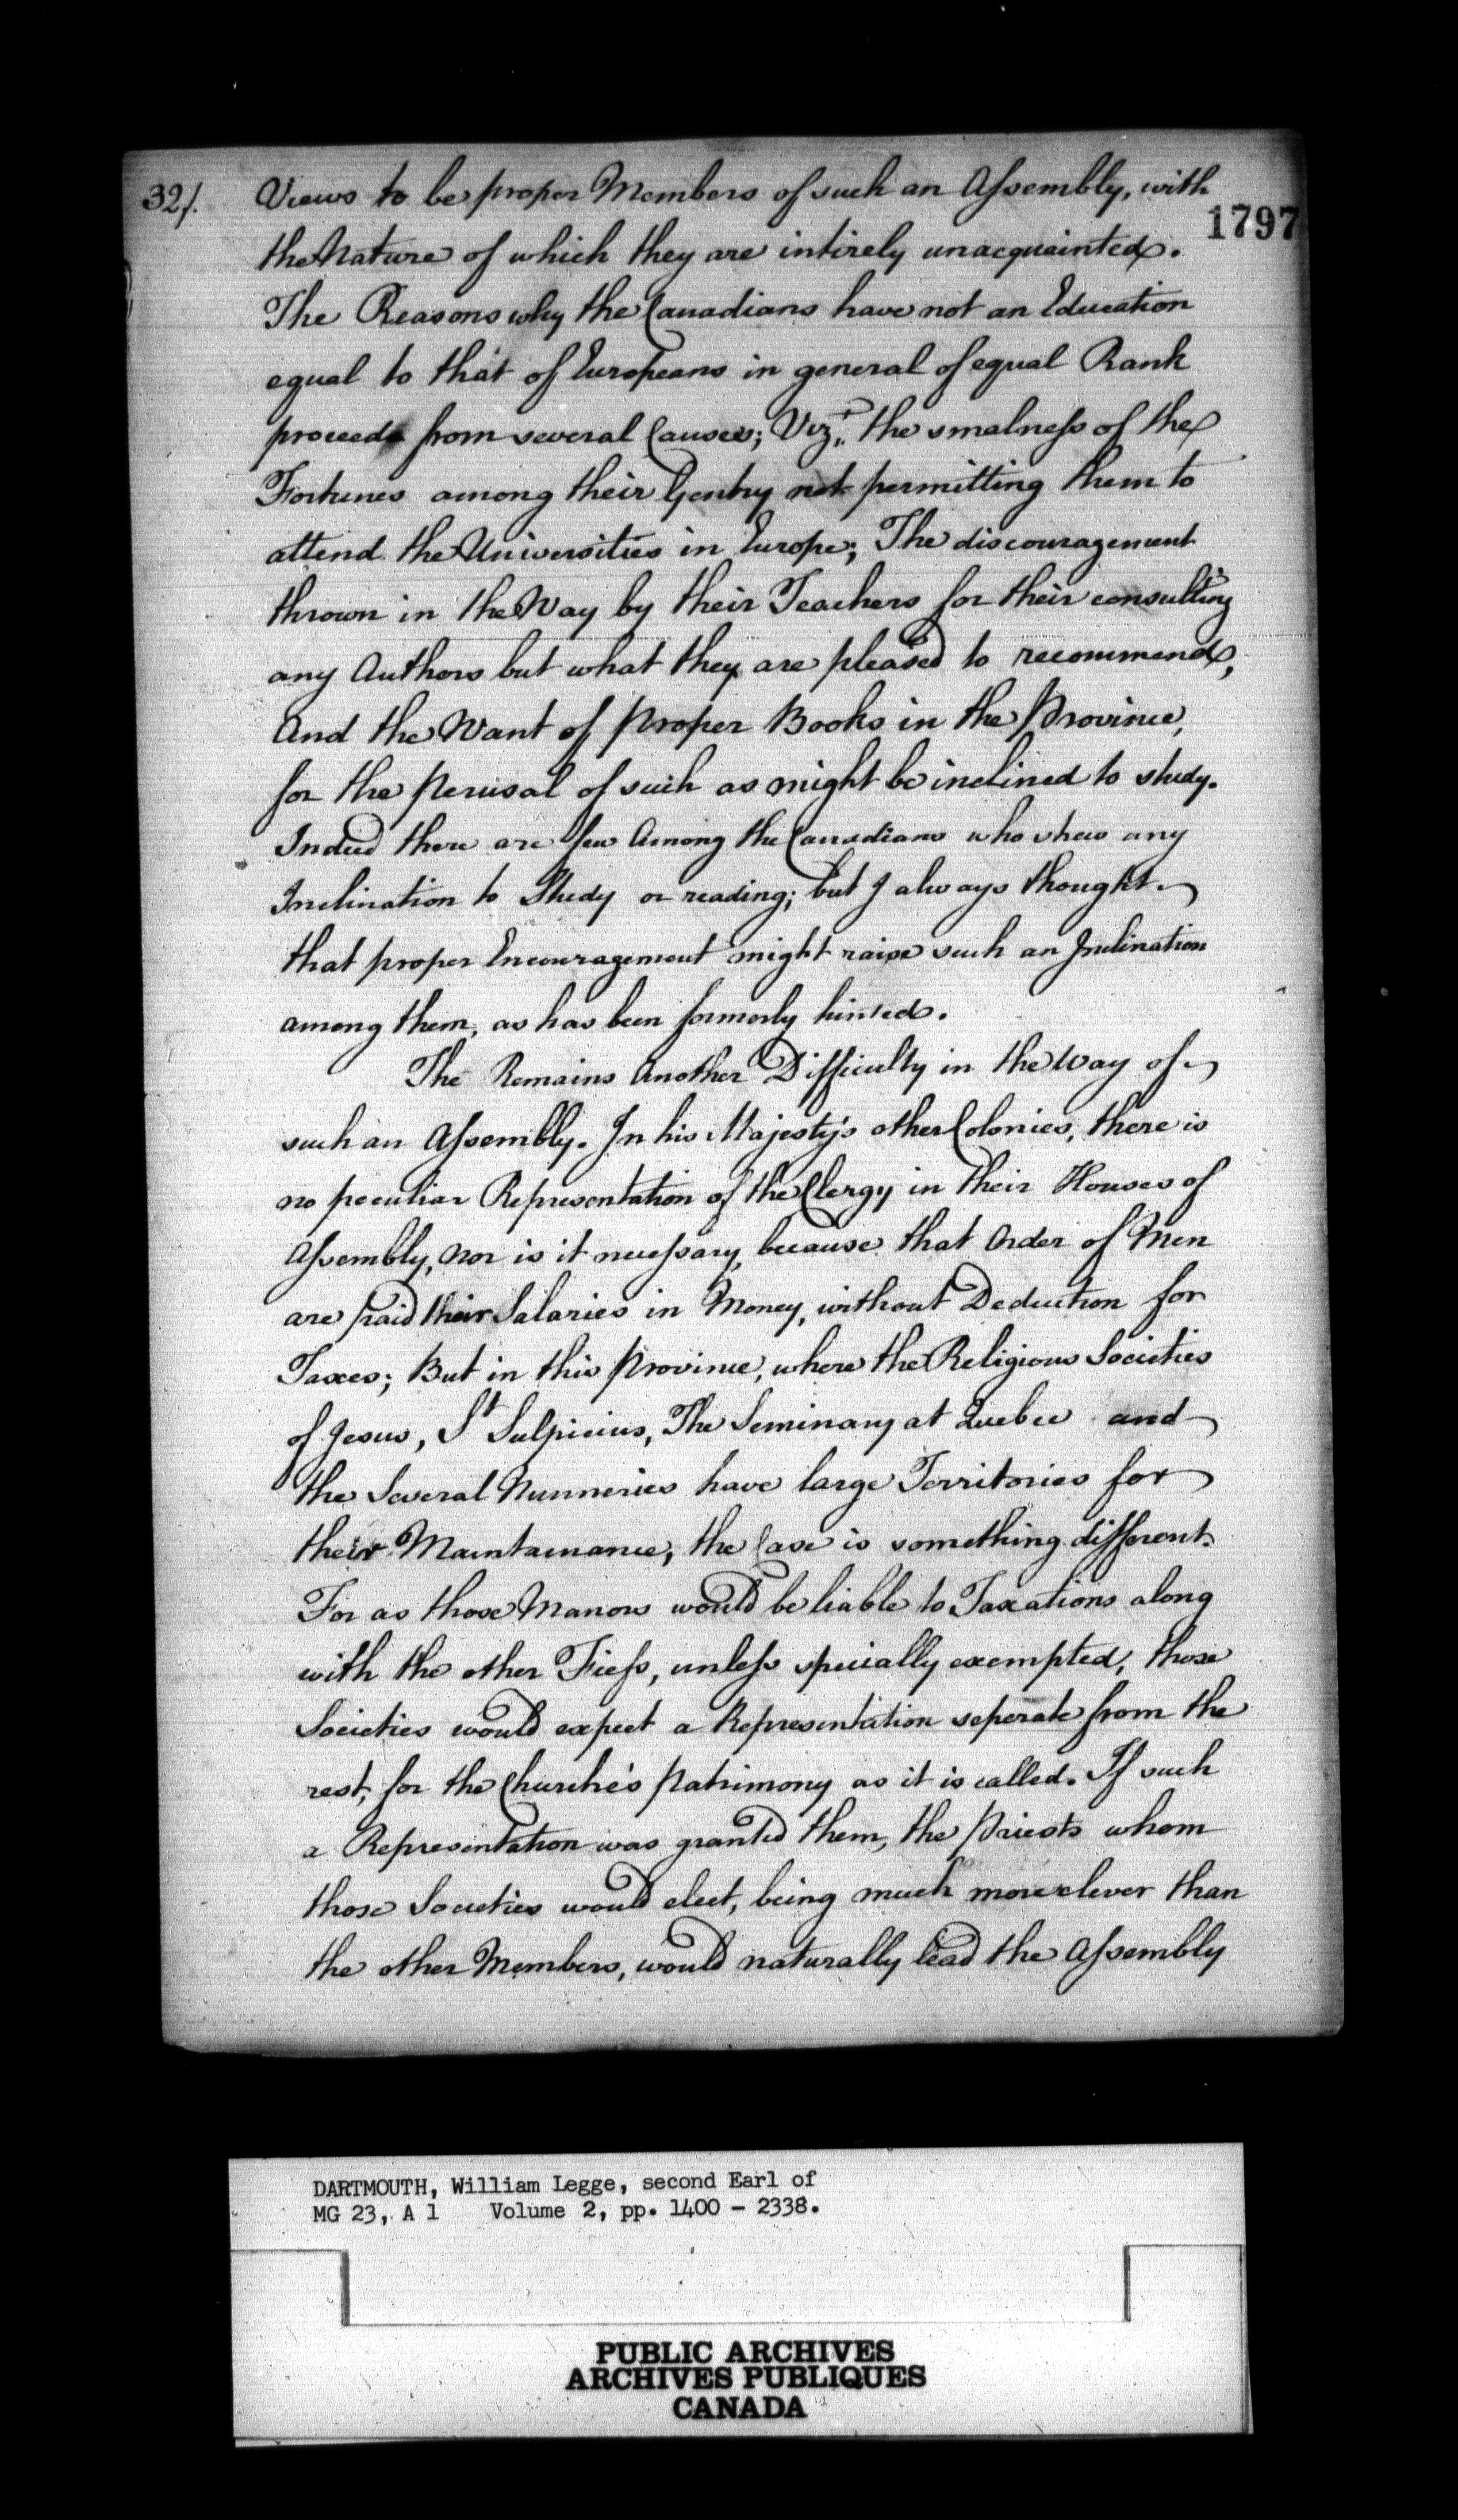 32/.
Views to be proper Members of such an Assembly, with
1797
the Nature of which they are intirely unacquainted.
The Reasons why the Canadians have not an Education
equal to that of Europeans in general of equal Rank
proceeds from several Causes; Vizt., the smalness of the
Fortunes among their Gentry not permitting them to
attend the Universities in Europe; The discouragement
thrown in the Way by their Teachers for their consulting
any Authors but what they are pleased to recommend,
And the Want of Proper Books in the Province,
for the Perusal of such as might be inclined to study.
Indeed there are few Among the Canadians who shew any
Inclination to Study or reading; but I always thought
that proper Encouragement might raise such an Inclination
among them, as has been formerly hinted.
The Remains Another Difficulty in the Way of
such an Assembly. In his Majesty's other Colonies, there is
no peculiar Representation of the Clergy in their Houses of
Assembly, nor is it necessary, because that Order of Men
are paid their Salaries in Money, without Deduction for
Taxes; But in this Province, where the Religious Societies
of Jesus, St Sulpicius, The Seminary at Quebec and
the Several Nunneries have large Territories for
their Maintainance, the Case is something different.
For as those Manors would be liable to Taxations along
with the other Fiefs, unless specially exempted, those
Societies would expect a Representation seperate from the
rest, for the Churche's Patrimony as it is called. If such
a Representation was granted them, the Priests whom
those Societies would elect, being much more clever than
the other Members, would naturally lead the Assembly
DARTMOUTH, William Legge, second Earl of
MG 23, A 1 Volume 2, pp. 1400 - 2338.
PUBLIC ARCHIVES
ARCHIVES PUBLIQUES
CANADA